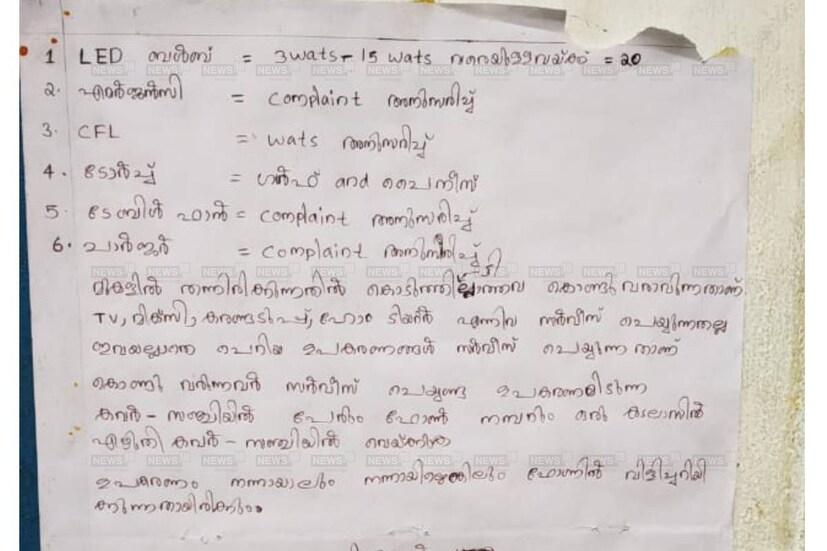 1 LED ബൾബ് = 3 wats - 15 wats വരെയുള്ളവയ്ക്ക് = 20
2. എമർജൻസി = complaint അനുസരിച്ച്
3. CFL = wats അനുസരിച്ച്
4. ടോർച്ച് = ഗൾഫ് and ചൈനീസ്
5. ടേബിൾ ഫാൻ = complaint അനുസരിച്ച്
6. ചാർജർ = complaint അനുസരിച്ച്
മുകളിൽ തന്നിരിക്കുന്നതിൽ കൊടുത്തിട്ടില്ലാത്തവ കൊണ്ടുവരാവുന്നതാണ്
TV, മിക്സി, കറണ്ടടുപ്പ്, ഹോം തിയറ്റർ എന്നിവ സർവീസ് ചെയ്യുന്നതല്ല
ഇവയല്ലാതെ ചെറിയ ഉപകരണങ്ങൾ സർവീസ് ചെയ്യുന്നതാണ്
കൊണ്ടു വരുന്നവർ സർവീസ് ചെയ്യേണ്ട ഉപകരണമിടുന്ന
കവർ - സഞ്ചിയിൽ പേരും ഫോൺ നമ്പറും ഒരു കടലാസിൽ
എഴുതി കവർ - സഞ്ചിയിൽ വെയ്ക്കുക
ഉപകരണം നന്നായാലും നന്നായില്ലെങ്കിലും ഫോണിൽ വിളിച്ചറിയി
ക്കുന്നതായിരിക്കും.